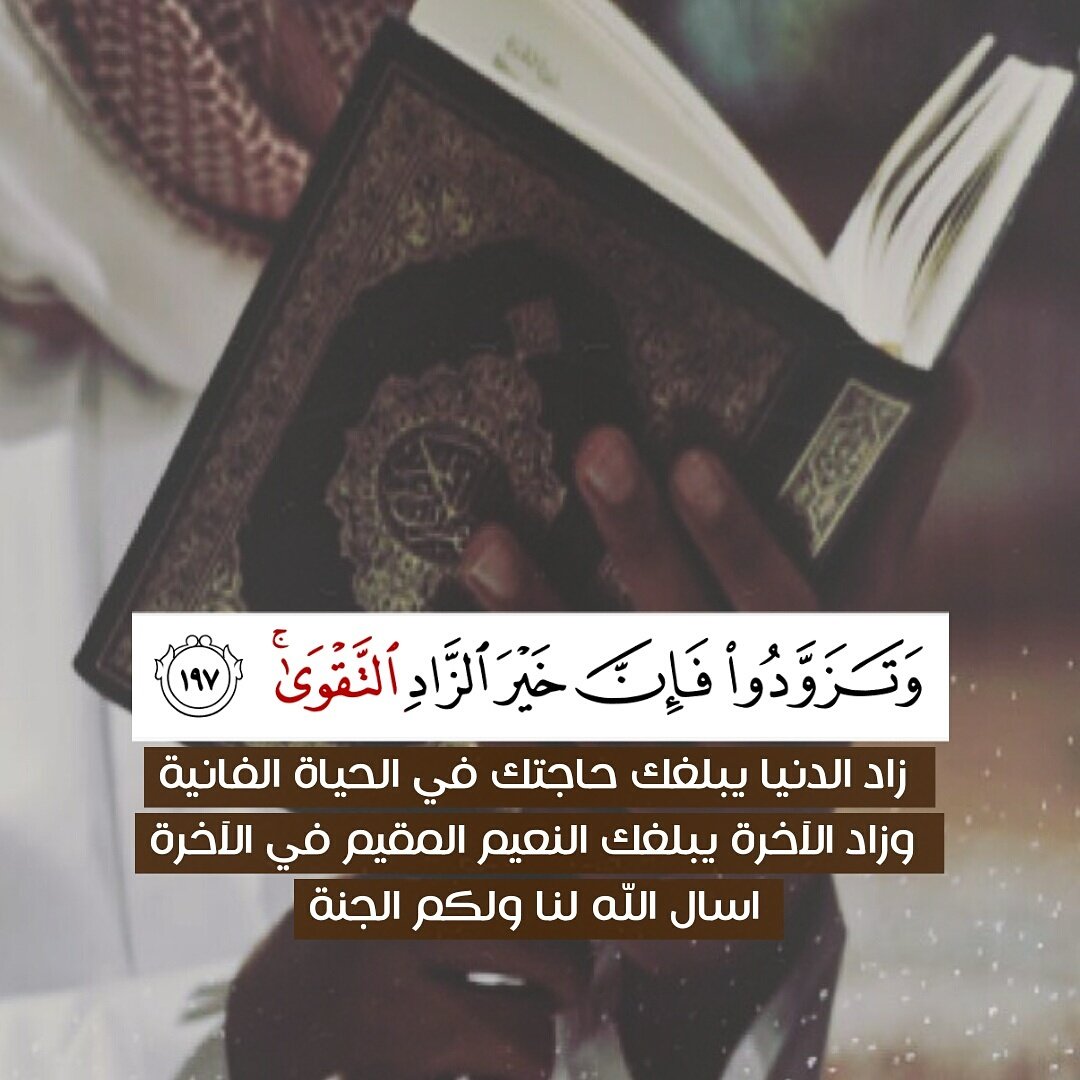 وَتَزَوَّدُوا۟ فَإِنَّ خَيْرَ ٱلزَّادِ ٱلتَّقْوَىٰۚ ١٩٧
زاد الدنيا يبلغك حاجتك في الحياة الفانية
وزاد الآخرة يبلغك النعيم المقيم في الآخرة
اسال الله لنا ولكم الجنة